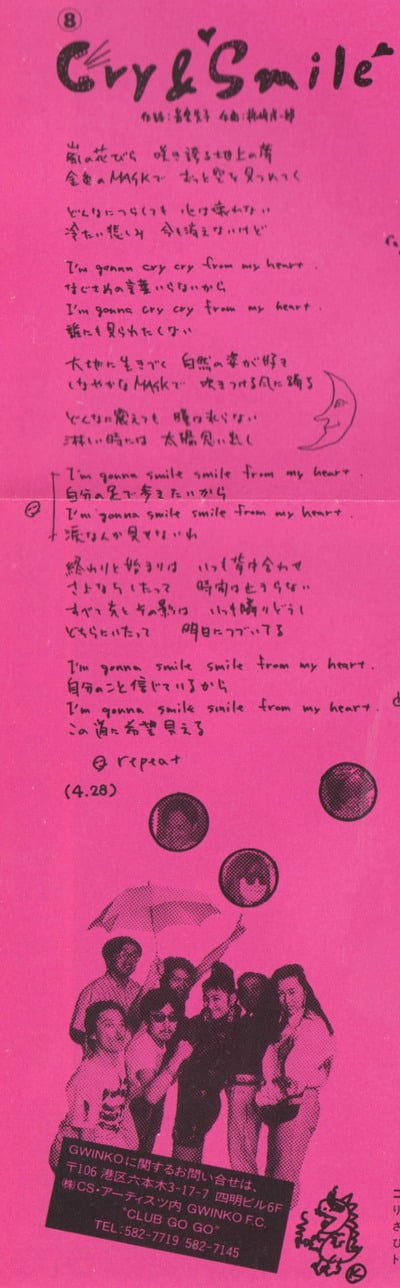 ⑧
Cry & Smile
嵐の花びら 咲き誇る地上の夢
金色のMASKで ずっと空を見つめてく
どんなにつらくても 心は壊れない
冷たい悲しみ 今も消えないけど
I'm gonna cry cry from my heart.
なぐさめの言葉いらないから
I'm gonna cry cry from my heart.
誰にも見られたくない
大地に生きづく 自然の姿が好き
しなやかなMASKで 吹きつける風に踊る
どんなに震えても 瞳は氷らない
淋しい時には 太陽思い出し
I'm gonna smile smile from my heart.
自分の足で歩きたいから
I'm gonna smile smile from my heart.
涙なんか見せないわ
終わりと始まりは いつも背中合わせ
さよならしたって 時間は止まらない
すべて光とその影は いつも隣りどうし
どちらにいたって 明日につづいてる
I'm gonna smile smile from my heart.
自分のこと信じているから
I'm gonna smile smile from my heart.
この道に希望見える
repeat
(4.28)
GWINKOに関するお問い合せは、
〒106 港区六本木3-17-7 四明ビル6F
㈱CS・アーティスツ内 GWINKO F.C.
"CLUB GO GO"
TEL:582-7719 582-7145